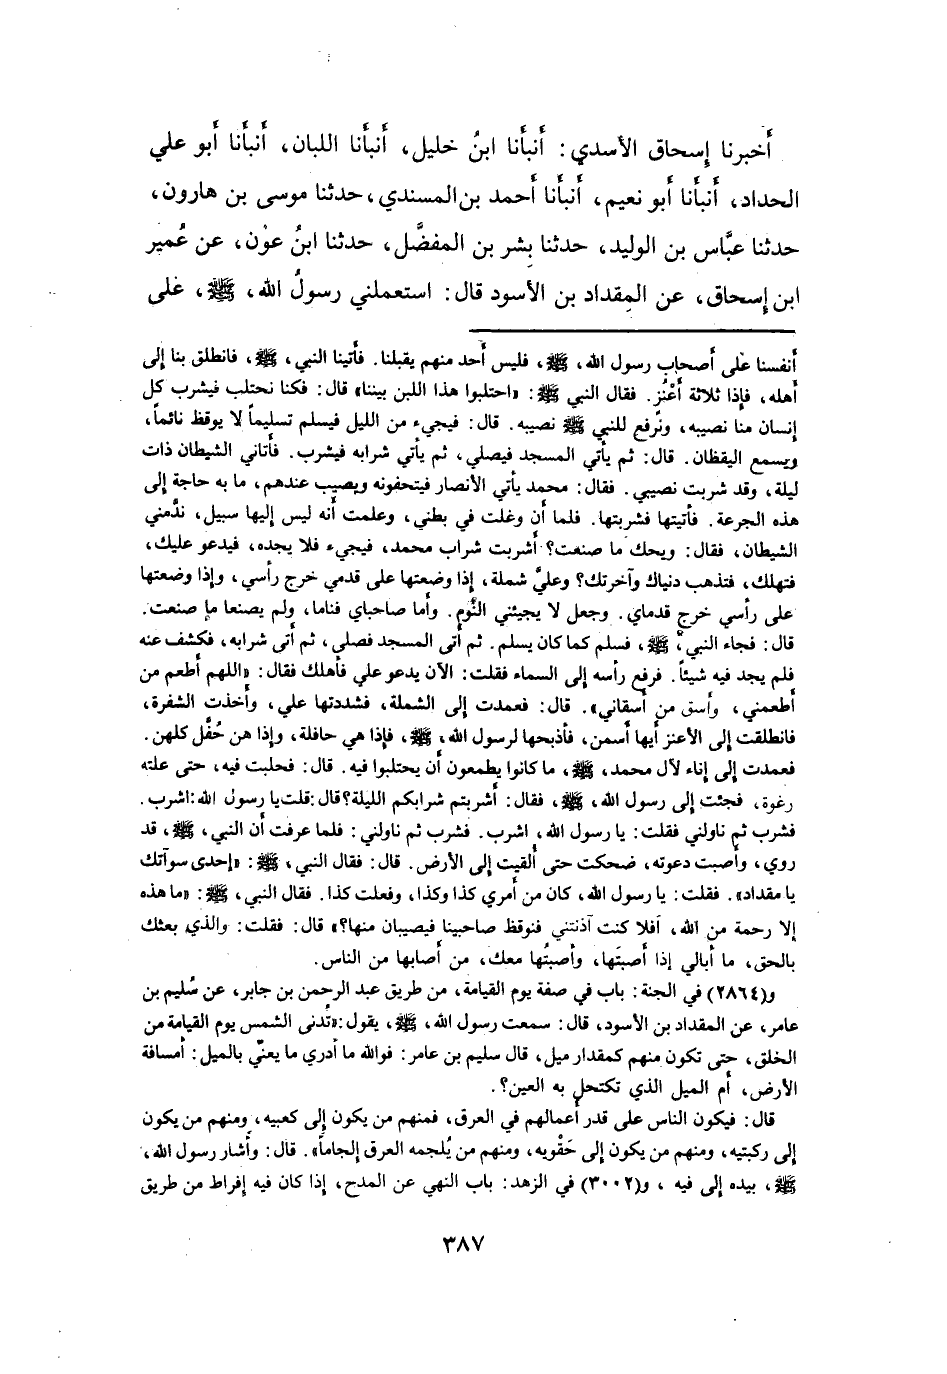 أَخبرنا إِسحاق الأسدي: أَنبأَنا ابنُ خليل، أَنبأَنا اللبان، أَنبأَنا أَبو علي
الحداد، أَنبأَنا أَبو نعيم، أَنبأَنا أَحمد بن المسندي، حدثنا موسى بن هارون،
حدثنا عبَّاس بن الوليد، حدثنا بِشر بن المفضَّل، حدثنا ابنُ عوْن، عن عُمير
ابن إِسحاق، عن المِقداد بن الأسود قال: استعملني رسولُ الله، ﷺ، على
أَنفسنا على أَصحاب رسول الله، ﷺ، فليس أَحد منهم يقبلنا. فأَتينا النبي، ﷺ، فانطلق بنا إلى
أهله، فإِذا ثلاثة أَعْنُز. فقال النبي ﷺ: «احتلبوا هذا اللبن بيننا» قال: فكنا نحتلب فيشرب كل
إنسان منا نصيبه، ونرفع للنبي ﷺ نصيبه. قال: فيجيء من الليل فيسلم تسليماً لا يوقظ نائماً،
ويسمع اليقظان. قال: ثم يأتي المسجد فيصلي، ثم يأتي شرابه فيشرب. فأتاني الشيطان ذات
ليلة، وقد شربت نصيبي. فقال: محمد يأتي الأنصار فيتحفونه ويصيب عندهم، ما به حاجة إلى
هذه الجرعة. فأتيتها فشربتها. فلما أن وغلت في بطني، وعلمت أنه ليس إليها سبيل، ندَّمني
الشيطان، فقال: ويحك ما صنعت؟ أشربت شراب محمد، فيجيء فلا يجده، فيدعو عليك،
فتهلك، فتذهب دنياك وآخرتك؟ وعليَّ شملة، إذا وضعتها على قدمي خرج رأسي، وإذا وضعتها
على رأسي خرج قدماي. وجعل لا يجيئني النَّوم. وأما صاحباي فناما، ولم يصنعا ما صنعت.
قال: فجاء النبي، ﷺ، فسلم كما كان يسلم. ثم أتى المسجد فصلى، ثم أتى شرابه، فكشف عنه
فلم يجد فيه شيئاً. فرفع رأسه إلى السماء فقلت: الآن يدعو علي فأهلك فقال: «اللهم أطعم من
أطعمني، وأسق من أسقاني». قال: فعمدت إلى الشملة، فشددتها علي، وأخذت الشفرة،
فانطلقت إلى الأعنز أيها أسمن، فأذبحها لرسول الله، ﷺ، فإذا هي حافلة، وإذا هن حُفَّل كلهن.
فعمدت إلى إناء لآل محمد، ﷺ، ما كانوا يطمعون أن يحتلبوا فيه. قال: فحلبت فيه، حتى علته
رغوة، فجئت إلى رسول الله، ﷺ، فقال: أشربتم شرابكم الليلة؟ قال: قلت يا رسول الله: اشرب.
فشرب ثم ناولني فقلت: يا رسول الله، اشرب. فشرب ثم ناولني: فلما عرفت أن النبي، ﷺ، قد
روي، وأصبت دعوته، ضحكت حتى ألقيت إلى الأرض. قال: فقال النبي، ﷺ: «إحدى سوآتك
يا مقداد». فقلت: يا رسول الله، كان من أمري كذا وكذا، وفعلت كذا. فقال النبي، ﷺ: «ما هذه
إلا رحمة من الله، أفلا كنت آذنتني فنوقظ صاحبينا فيصيبان منها؟» قال: فقلت: والذي بعثك
بالحق، ما أبالي إذا أصبتَها، وأصبتُها معك، من أصابها من الناس.
و(٢٨٦٤) في الجنة: باب في صفة يوم القيامة، من طريق عبد الرحمن بن جابر، عن سُليم بن
عامر، عن المقداد بن الأسود، قال: سمعت رسول الله، ﷺ، يقول: «تُدنى الشمس يوم القيامة من
الخلق، حتى تكون منهم كمقدار ميل، قال سليم بن عامر: فوالله ما أدري ما يعني بالميل: أمسافة
الأرض، أم الميل الذي تكتحل به العين؟.
قال: فيكون الناس على قدر أعمالهم في العرق، فمنهم من يكون إلى كعبيه، ومنهم من يكون
إلى ركبتيه، ومنهم من يكون إلى حَقْويه، ومنهم من يُلجمه العرق إلجاماً». قال: وأشار رسول الله،
ﷺ، بيده إلى فيه، و(٣٠٠٢) في الزهد: باب النهي عن المدح، إذا كان فيه إفراط من طريق
٣٨٧